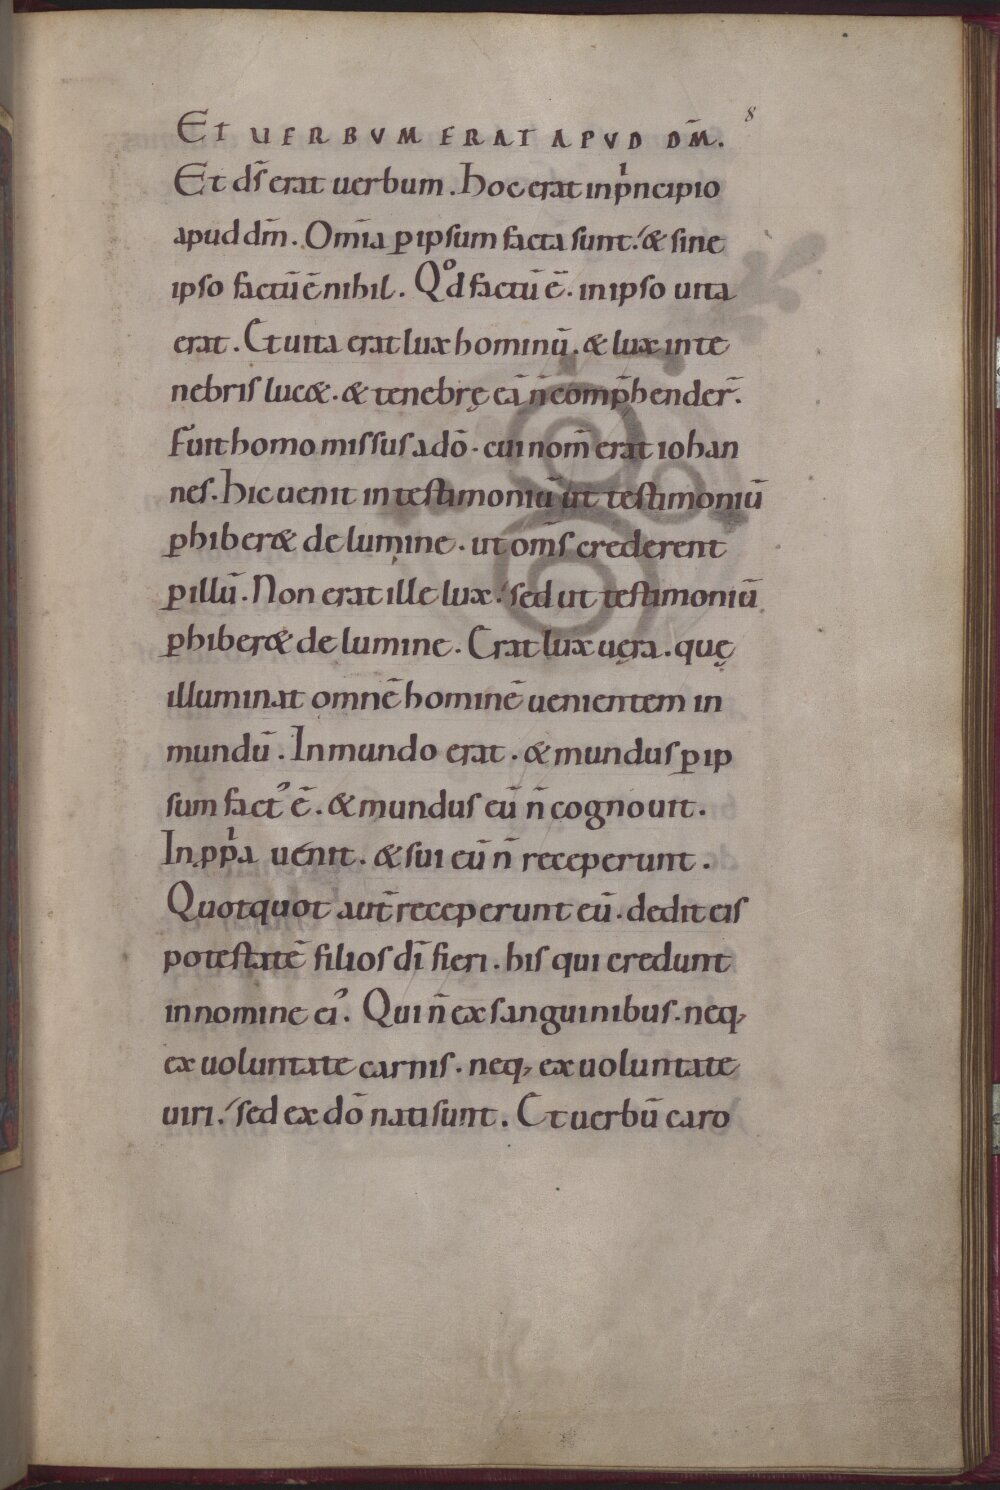 8
ET UERBVM ERAT APVD DM̄.
Et ds̄ erat uerbum. Hoc erat inpͥncipio
apud dm̄. Om̄ia ꝑ ipsum facta sunt: & sine
ipso factū ē nihil. Qͦd factū ē. in ipso uita
erat. Et uita erat lux hominū. & lux in te
nebris luc&. & tenebrę eā n̄ comp̄hender̄.
Fuit homo missus a dō. cui nom̄ erat iohan
nes. Hic uenit in testimoniū ut testimoniū
ꝑhiber& de lumine. ut om̄s crederent
ꝑ illū. Non erat ille lux: sed ut testimoniū
ꝑhiber& de lumine. Erat lux uęra. quę
illuminat omnē hominē uenientem in
mundū. In mundo erat. & mundus ꝑ ip
sum factꝰ ē. & mundus eū n̄ cognouit.
In ppͥa uenit. & sui eū n̄ receperunt.
Quotquot aut̄ receperunt eū. dedit eis
potestatē filios dī fieri. his qui credunt
in nomine eiꝰ. Qui n̄ ex sanguinibus. neq;
ex uoluntate carnis. neq; ex uoluntate
uiri: sed ex dō nati sunt. Et uerbū caro